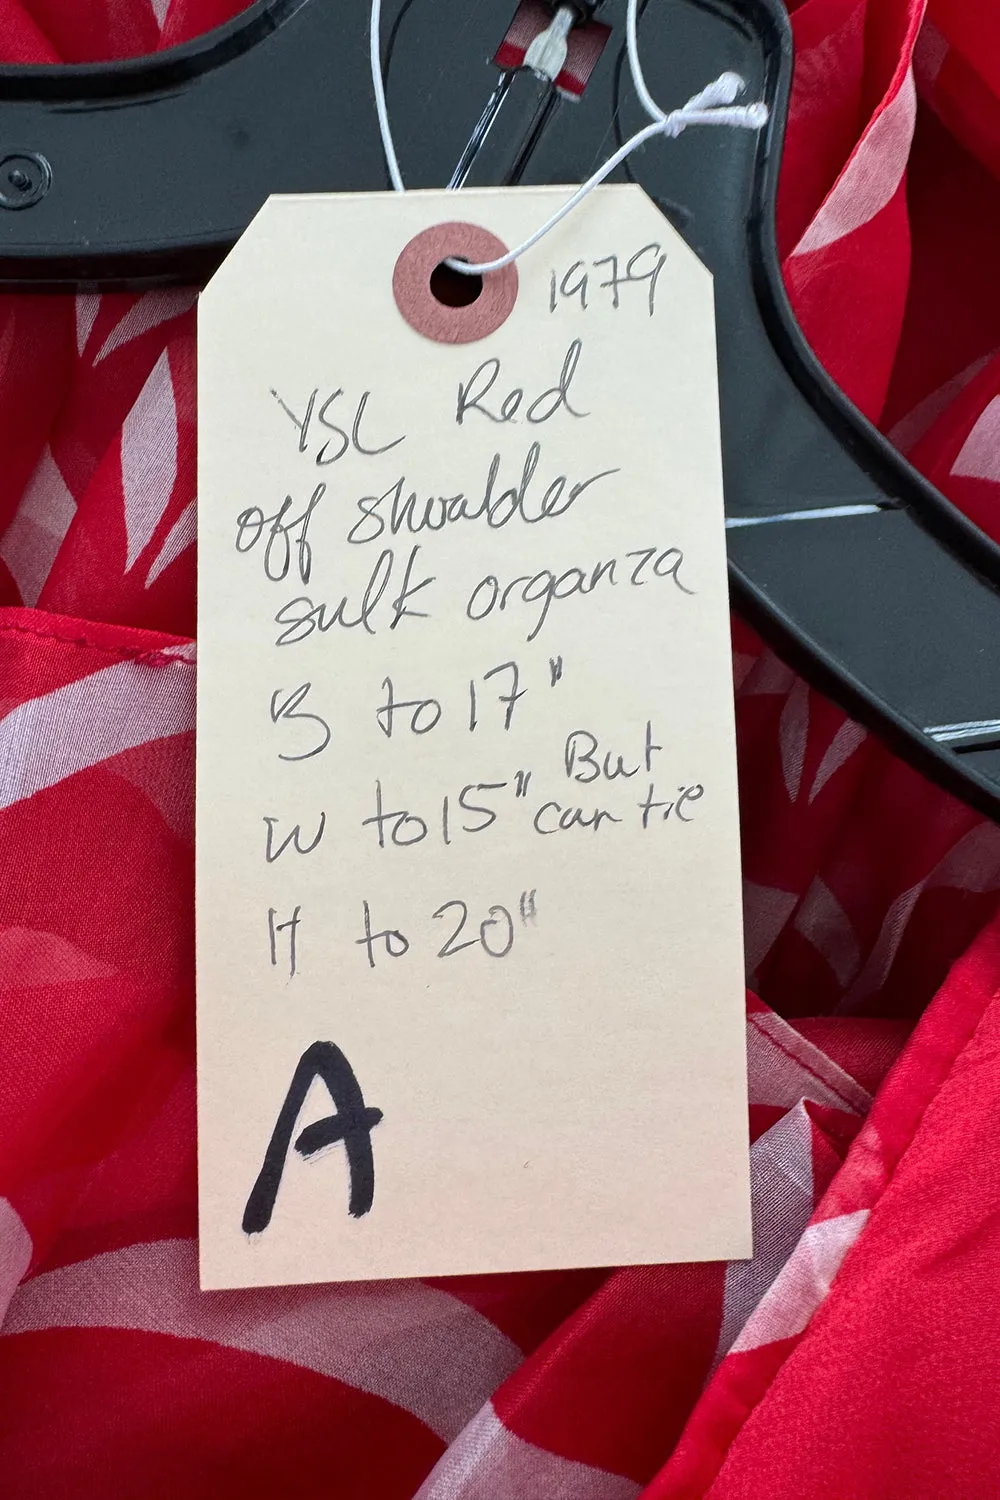 1979
YSL Red
off shoulder
silk organza
B to 17"
W to 15" But can tie
H to 20"
A